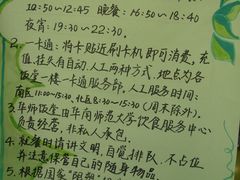 10:50~12:45 晚餐:16:50~18:40
夜宵:19:30~22:30.
2、一卡通:将卡贴近刷卡机即可消费,充
值、挂失有自动、人工两种方式,地点为各
饭堂一楼一卡通服务部,人工服务时间:
南区11:00~15:30、北区8:30~15:30(周末除外).
3、华师饭堂由华南师范大学饮食服务中心
负责经营,非私人承包.
4、就餐时请讲文明,自觉排队,不占位
并注意保管自己的随身物品.
5、根据国家"限塑"